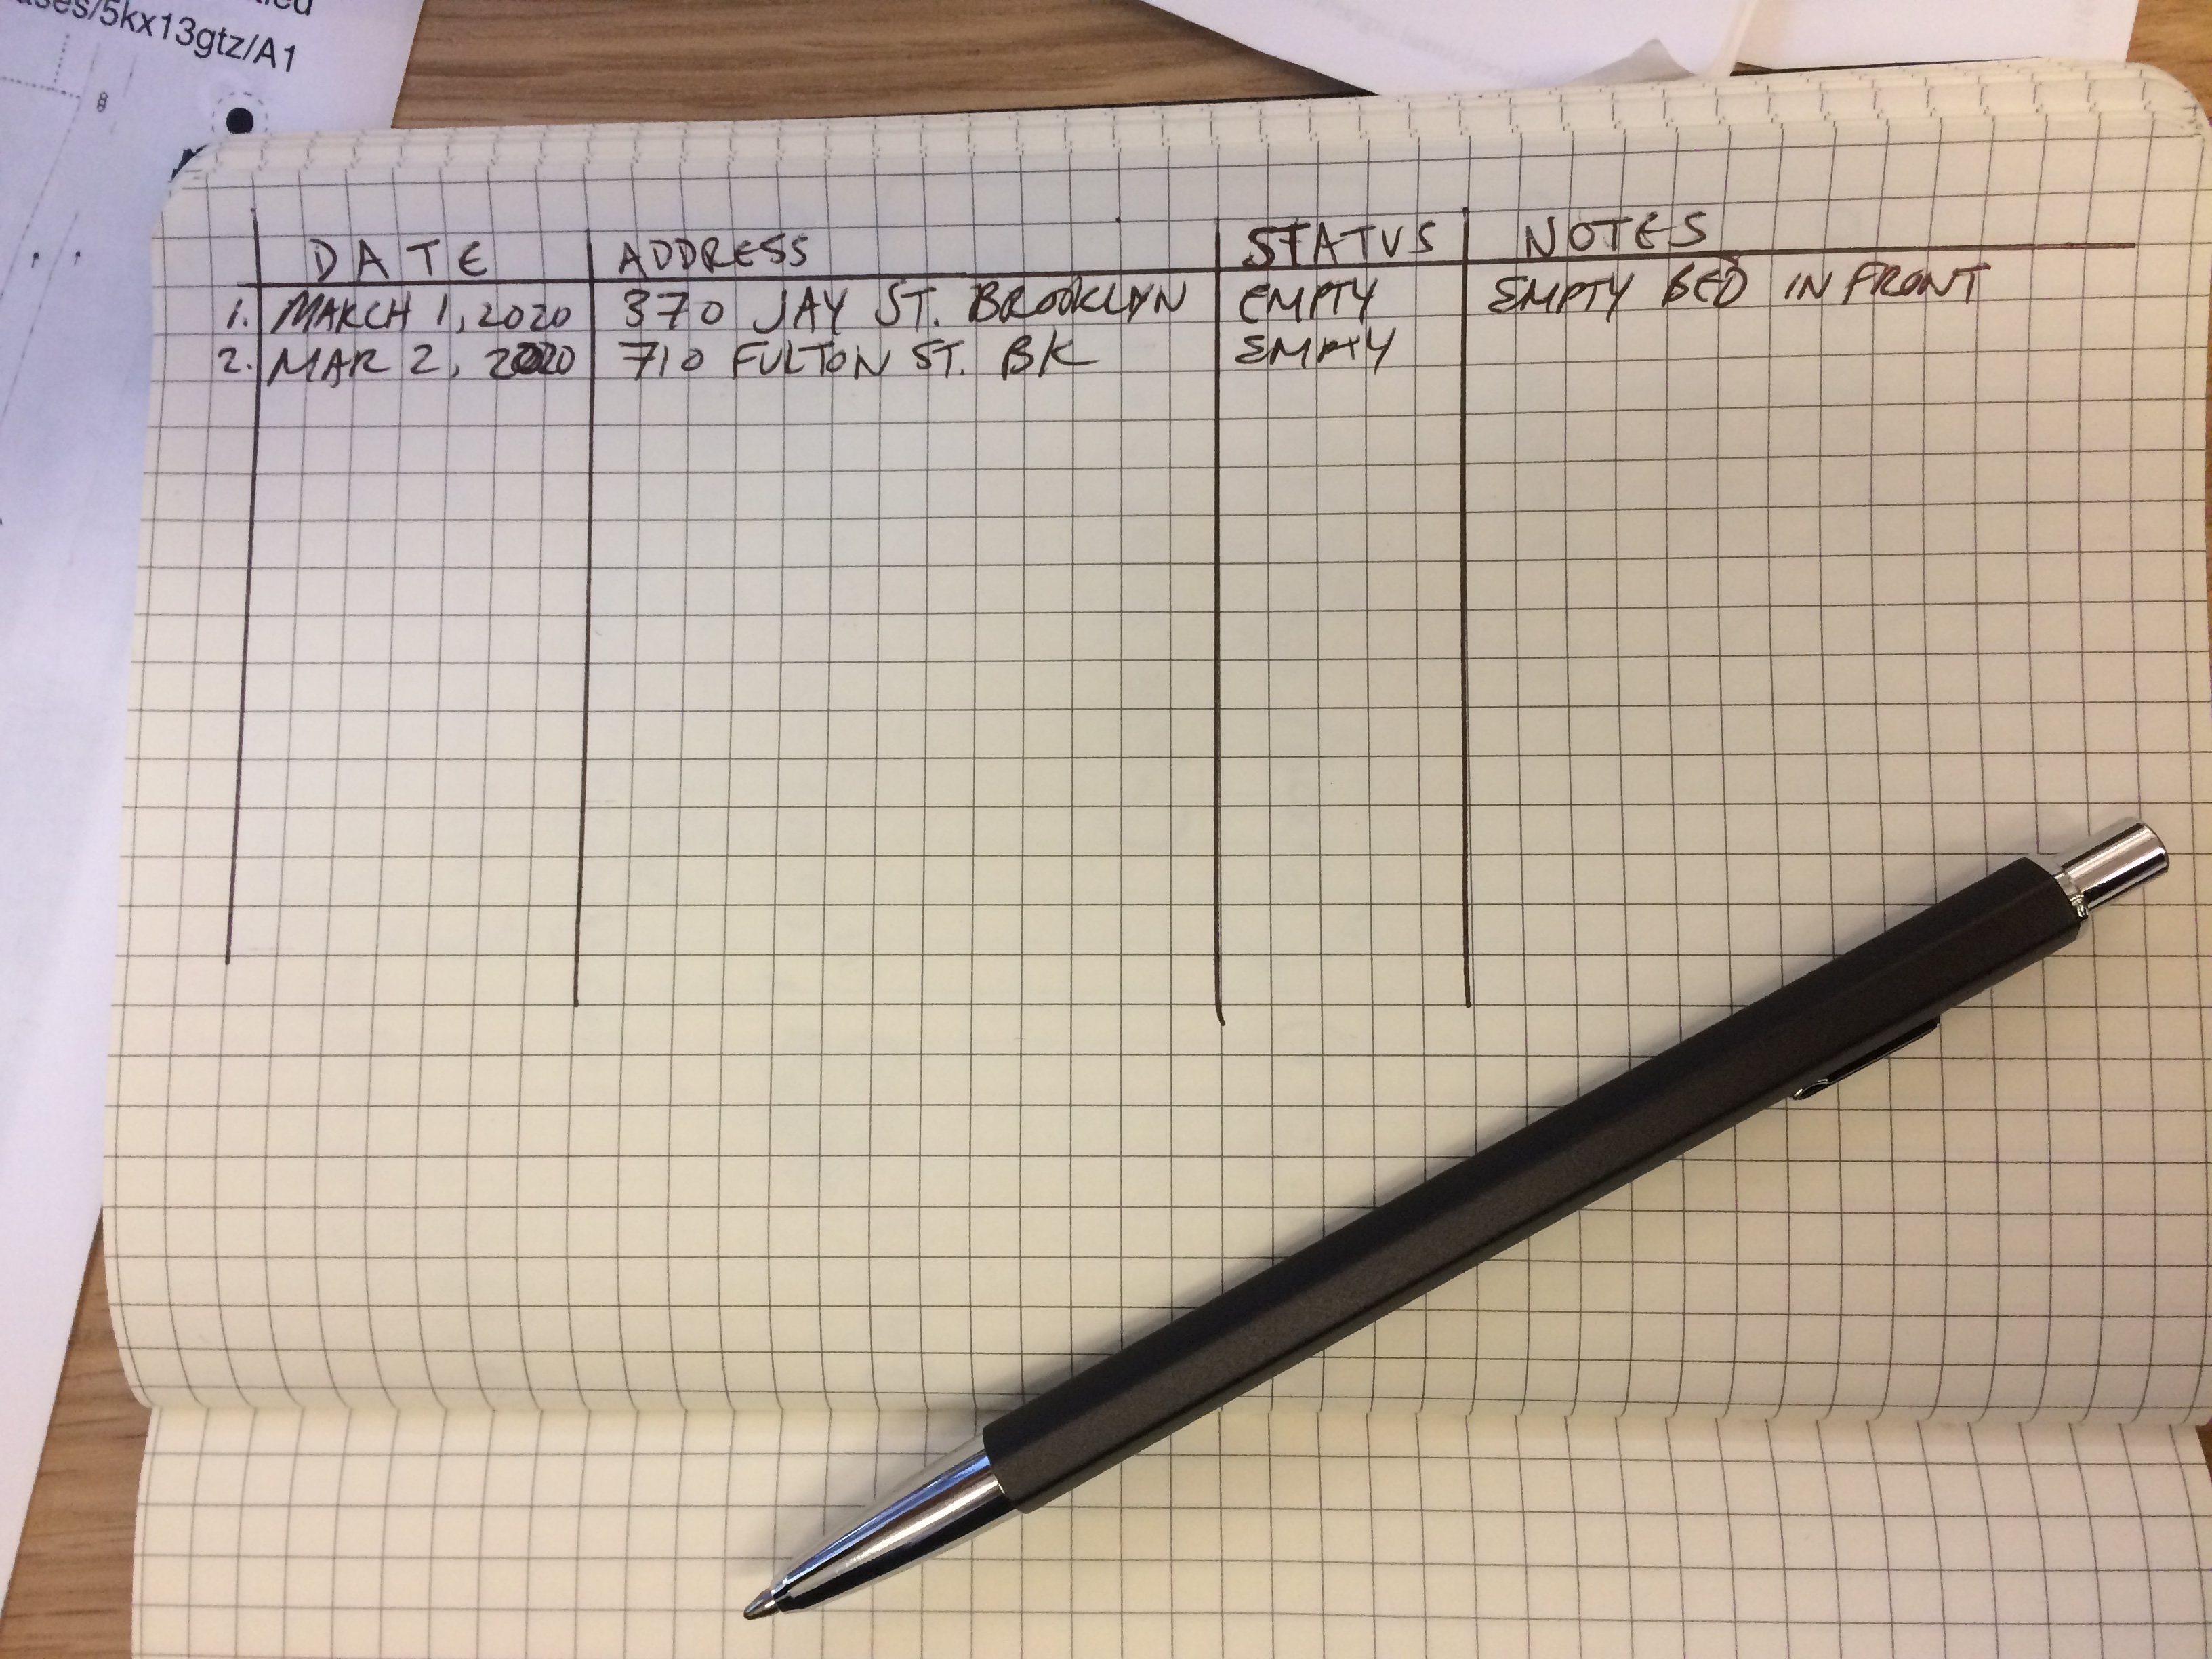 ases/5kx13gtz/A1
DATE ADDRESS STATUS NOTES
1. MARCH 1, 2020 370 JAY ST. BROOKLYN EMPTY EMPTY BED IN FRONT
2. MAR 2, 2020 710 FULTON ST. BK EMPTY